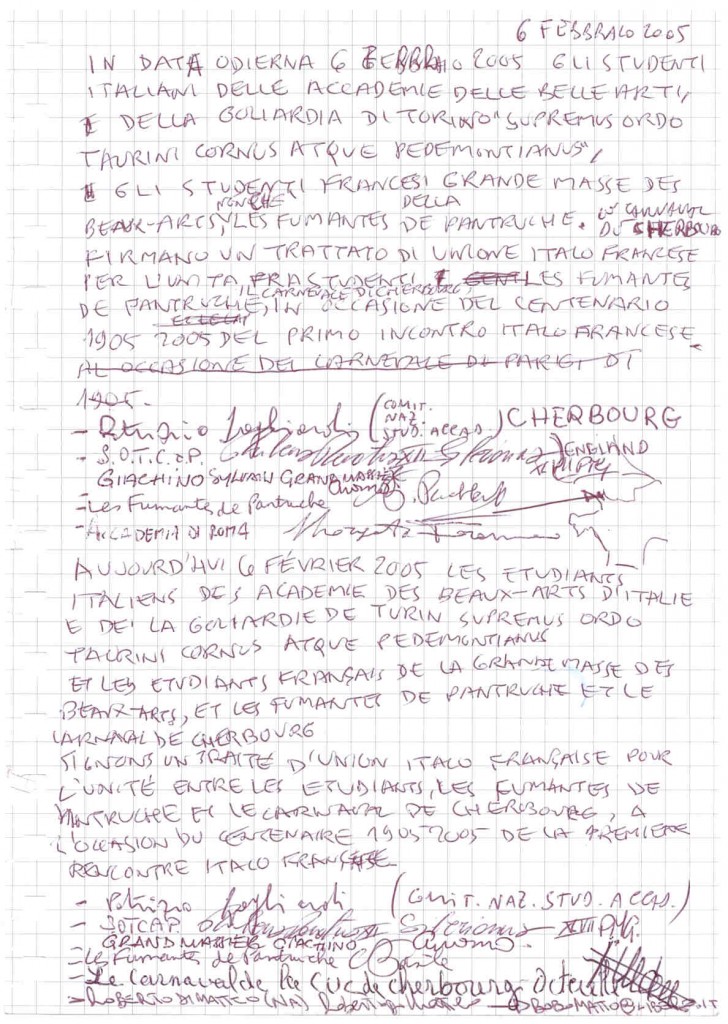 6 FEBBRAIO 2005
IN DATA ODIERNA 6 FEBBRAIO 2005 GLI STUDENTI
ITALIANI DELLE ACCADEMIE DELLE BELLE ARTI,
E DELLA GOLIARDIA DI TORINO "SUPREMUS ORDO
TAURINI CORNUS ATQUE PEDEMONTIANUS",
E GLI STUDENTI FRANCESI GRANDE MASSE DES
NONCHE DELLA
BEAUX-ARTS, LES FUMANTES DE PANTRUCHE. LE CARNAVAL
DU CHERBOURG
FIRMANO UN TRATTATO DI UNIONE ITALO FRANCESE
PER L'UNITA FRA STUDENTI E LES FUMANTES
IL CARNEVALE DI CHERBOURG
DE PANTRUCHE, IN OCCASIONE DEL CENTENARIO
1905 2005 DEL PRIMO INCONTRO ITALO FRANCESE
AL OCCASIONE DEL CARNEVALE DI PARIGI DI
1905.
- Patrizio (COMIT. NAZ. STUD. ACCAD) CHERBOURG
- S.O.T.C.P. ENGLAND
GIACHINO SYLVAIN GRAND MASSIER
- Les Fumantes de Pantruche
- ACCADEMIA DI ROMA
AUJOURD'HUI 6 FÉVRIER 2005 LES ETUDIANTS
ITALIENS DES ACADEMIE DES BEAUX-ARTS D'ITALIE
E DE LA GOLIARDIE DE TURIN SUPREMUS ORDO
TAURINI CORNUS ATQUE PEDEMONTIANUS
ET LES ETUDIANTS FRANÇAIS DE LA GRANDE MASSE DES
BEAUX-ARTS, ET LES FUMANTES DE PANTRUCHE ET LE
CARNAVAL DE CHERBOURG
SIGNONS UN TRAITÉ D'UNION ITALO FRANÇAISE POUR
L'UNITÉ ENTRE LES ETUDIANTS, LES FUMANTES DE
PANTRUCHE ET LE CARNAVAL DE CHERBOURG, A
L'OCCASION DU CENTENAIRE 1905 2005 DE LA PREMIERE
RENCONTRE ITALO FRANÇAISE
- Patrizio (COMIT. NAZ. STUD. ACCAD.)
- SOTCAP.
GRAND MASSIER GIACHINO
- Les Fumantes de Pantruche
- Le Carnaval de la de Cherbourg
- ROBERTO DI MATTEO (NA)